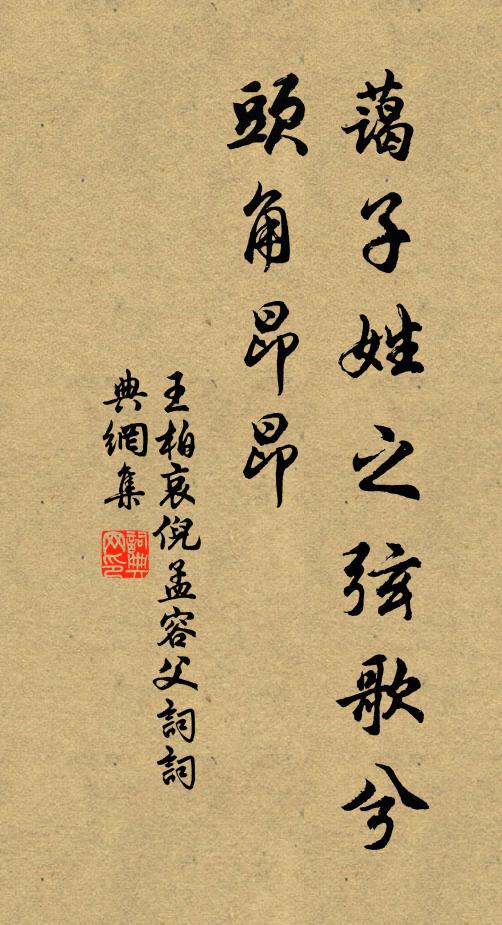 蔼子姓之弦歌兮
頭角昂昂
王柏哀倪孟容父詞詞
典網集
詞典
网印